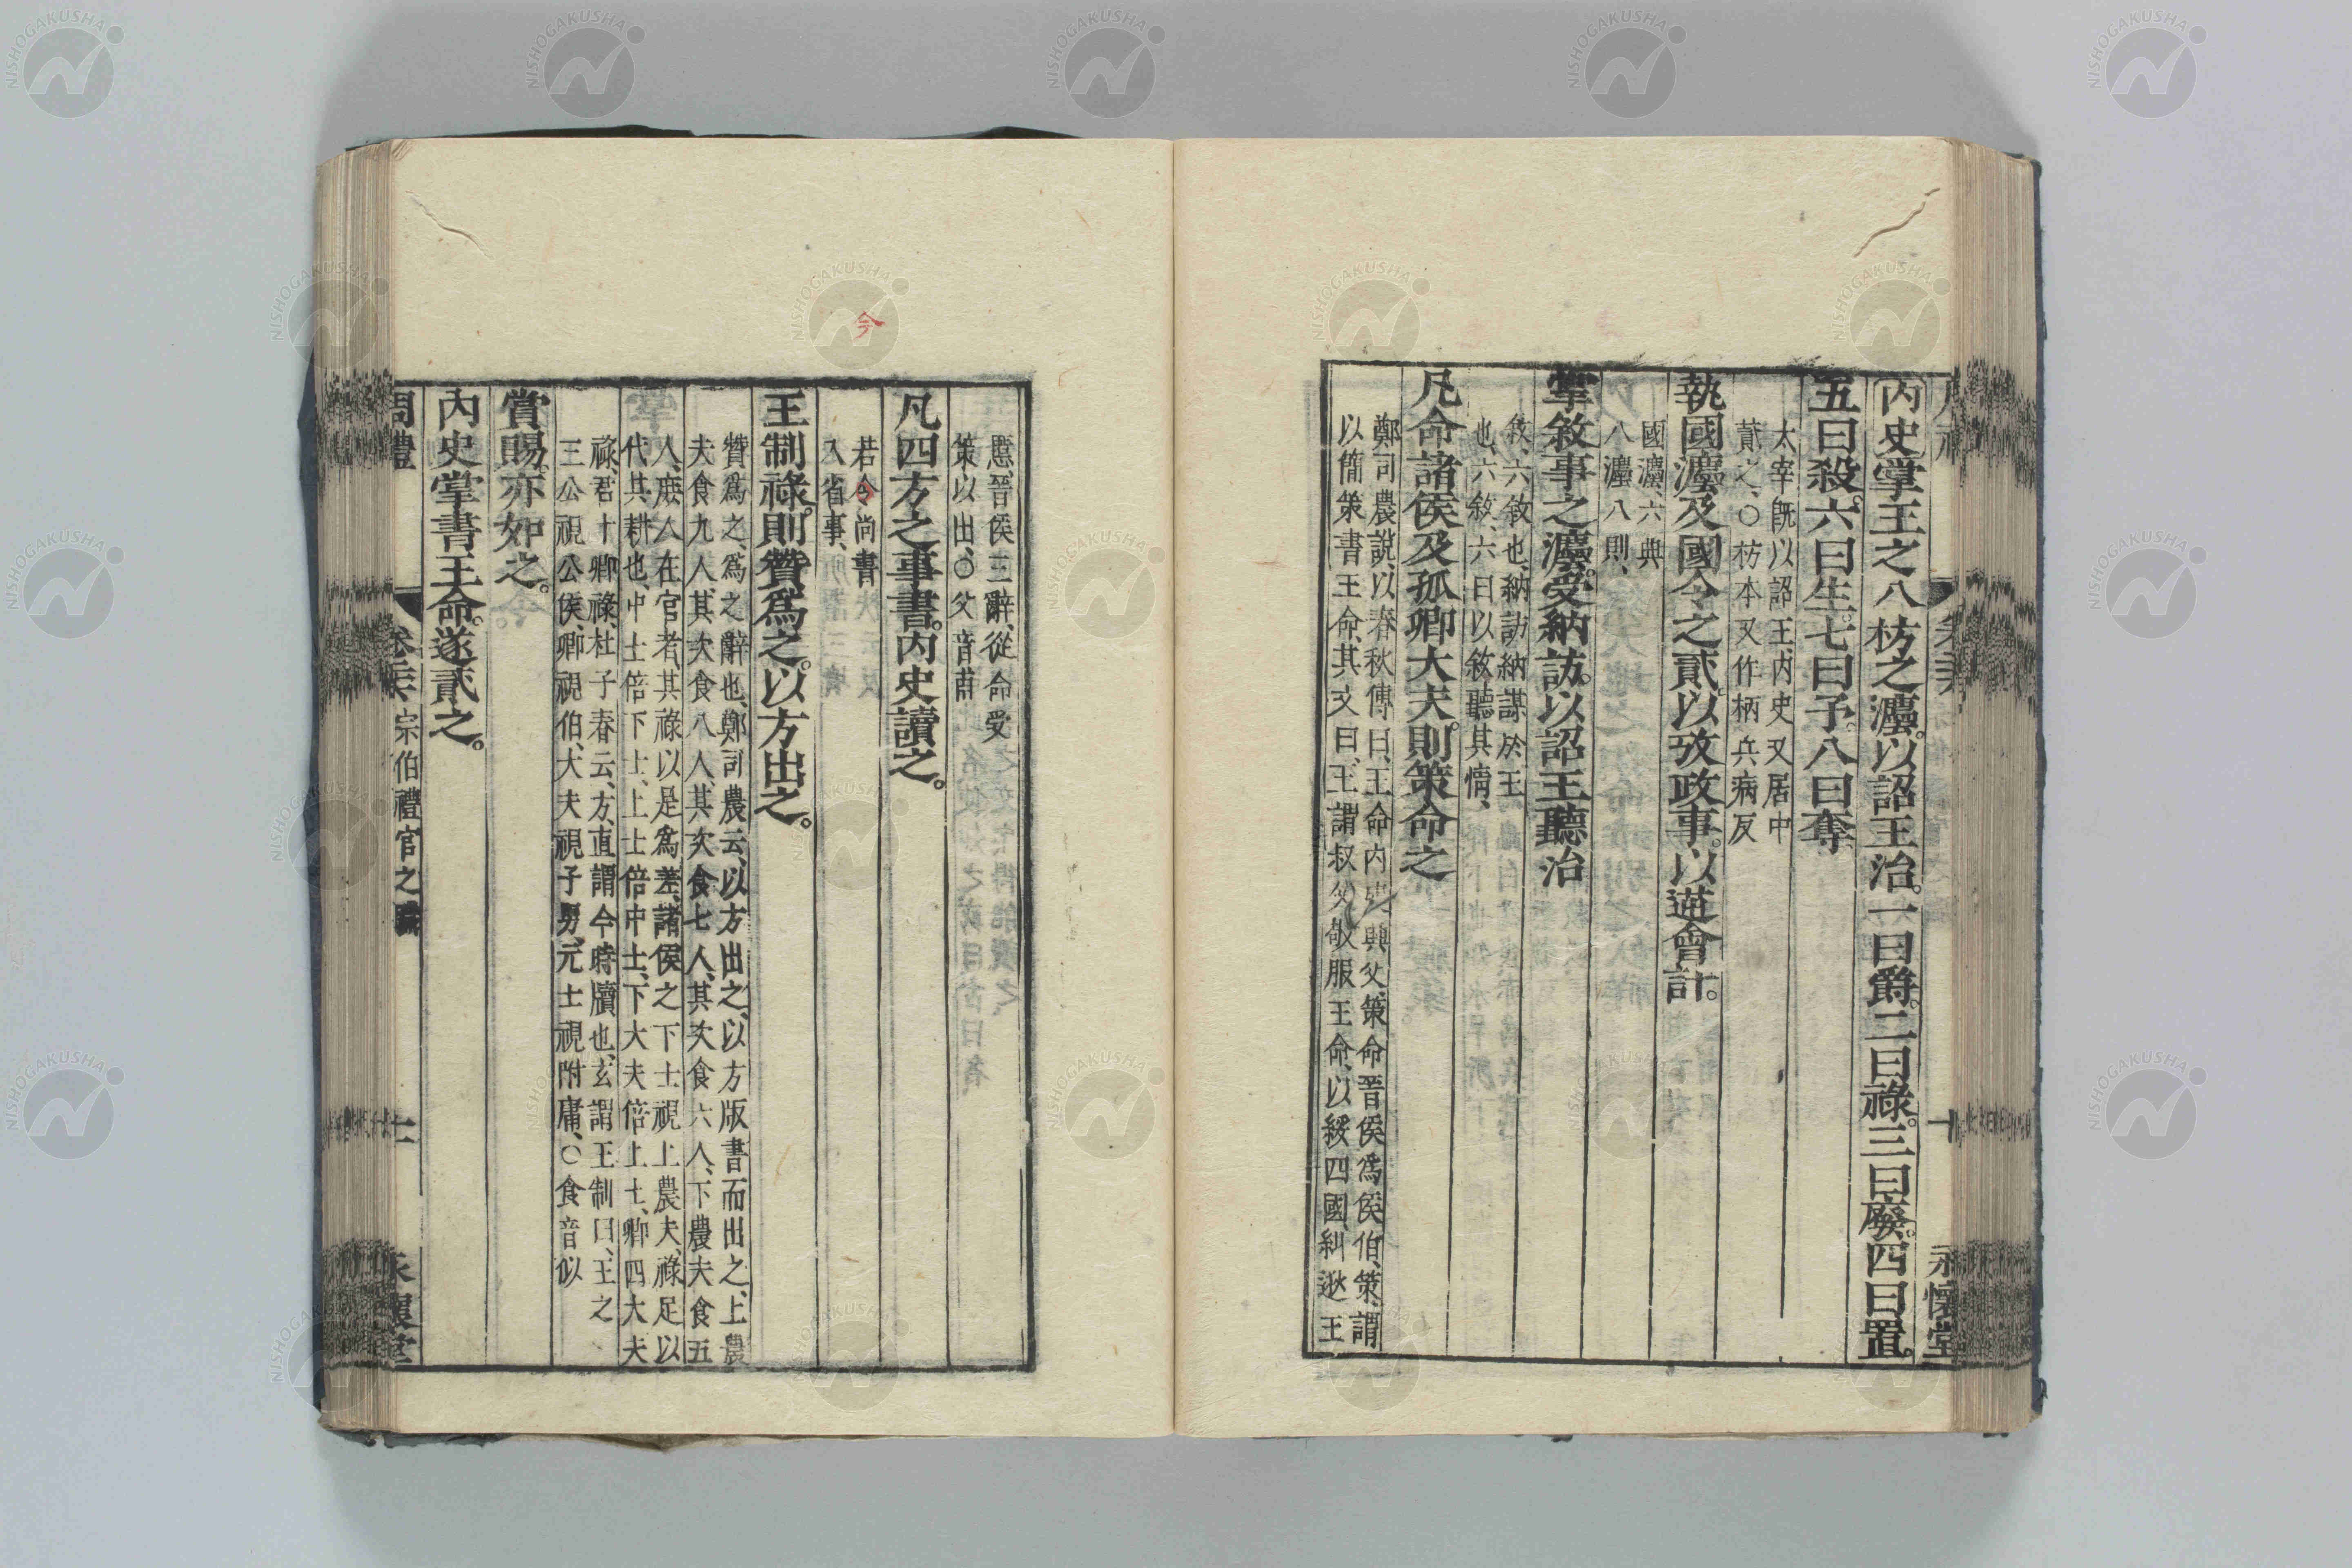 内史掌王之八枋之灋。以詔王治。一曰爵。二曰祿。三曰廢。四曰置。
五曰殺。六曰生。七曰予。八曰奪
太宰旣以詔王、内史又居中
貳之、○枋本又作柄兵病反
執國灋及國令之貳。以攷政事。以逆會計。
國灋、六典
八灋八則、
掌敘事之灋。受納訪。以詔王聽治
敘、六敘也、納訪納謀於王
也、六敘、六曰以敘聽其情、
凡命諸侯及孤卿大夫。則策命之
鄭司農說、以春秋傳曰、王命内史興父、策命晉侯爲侯伯、策、謂
以簡策書王命、其文曰、王謂叔父、敬服王命、以綏四國、糾逖王
慝、晉侯三辭、從命受
策以出、○父音甫
凡四方之事書。内史讀之。
若今尚書
入省事、
今
王制祿。則贊爲之。以方出之。
贊爲之、爲之辭也、鄭司農云、以方出之、以方版書而出之、上農
夫食九人、其次食八人、其次食七人、其次食六人、下農夫食五
人、庶人在官者、其祿以是爲差、諸侯之下士視上農夫、祿足以
代其耕也、中士倍下士、上士倍中士、下大夫倍上士、卿四大夫
祿、君十卿祿、杜子春云、方、直謂今時牘也、玄謂王制曰、王之
三公視公侯、卿視伯、大夫視子男、元士視附庸、○食音似
賞賜。亦如之。
内史掌書王命。遂貳之。
周禮
宗伯禮官之職
十一
永懷堂
十
永懷堂
NISHOGAKUSHA